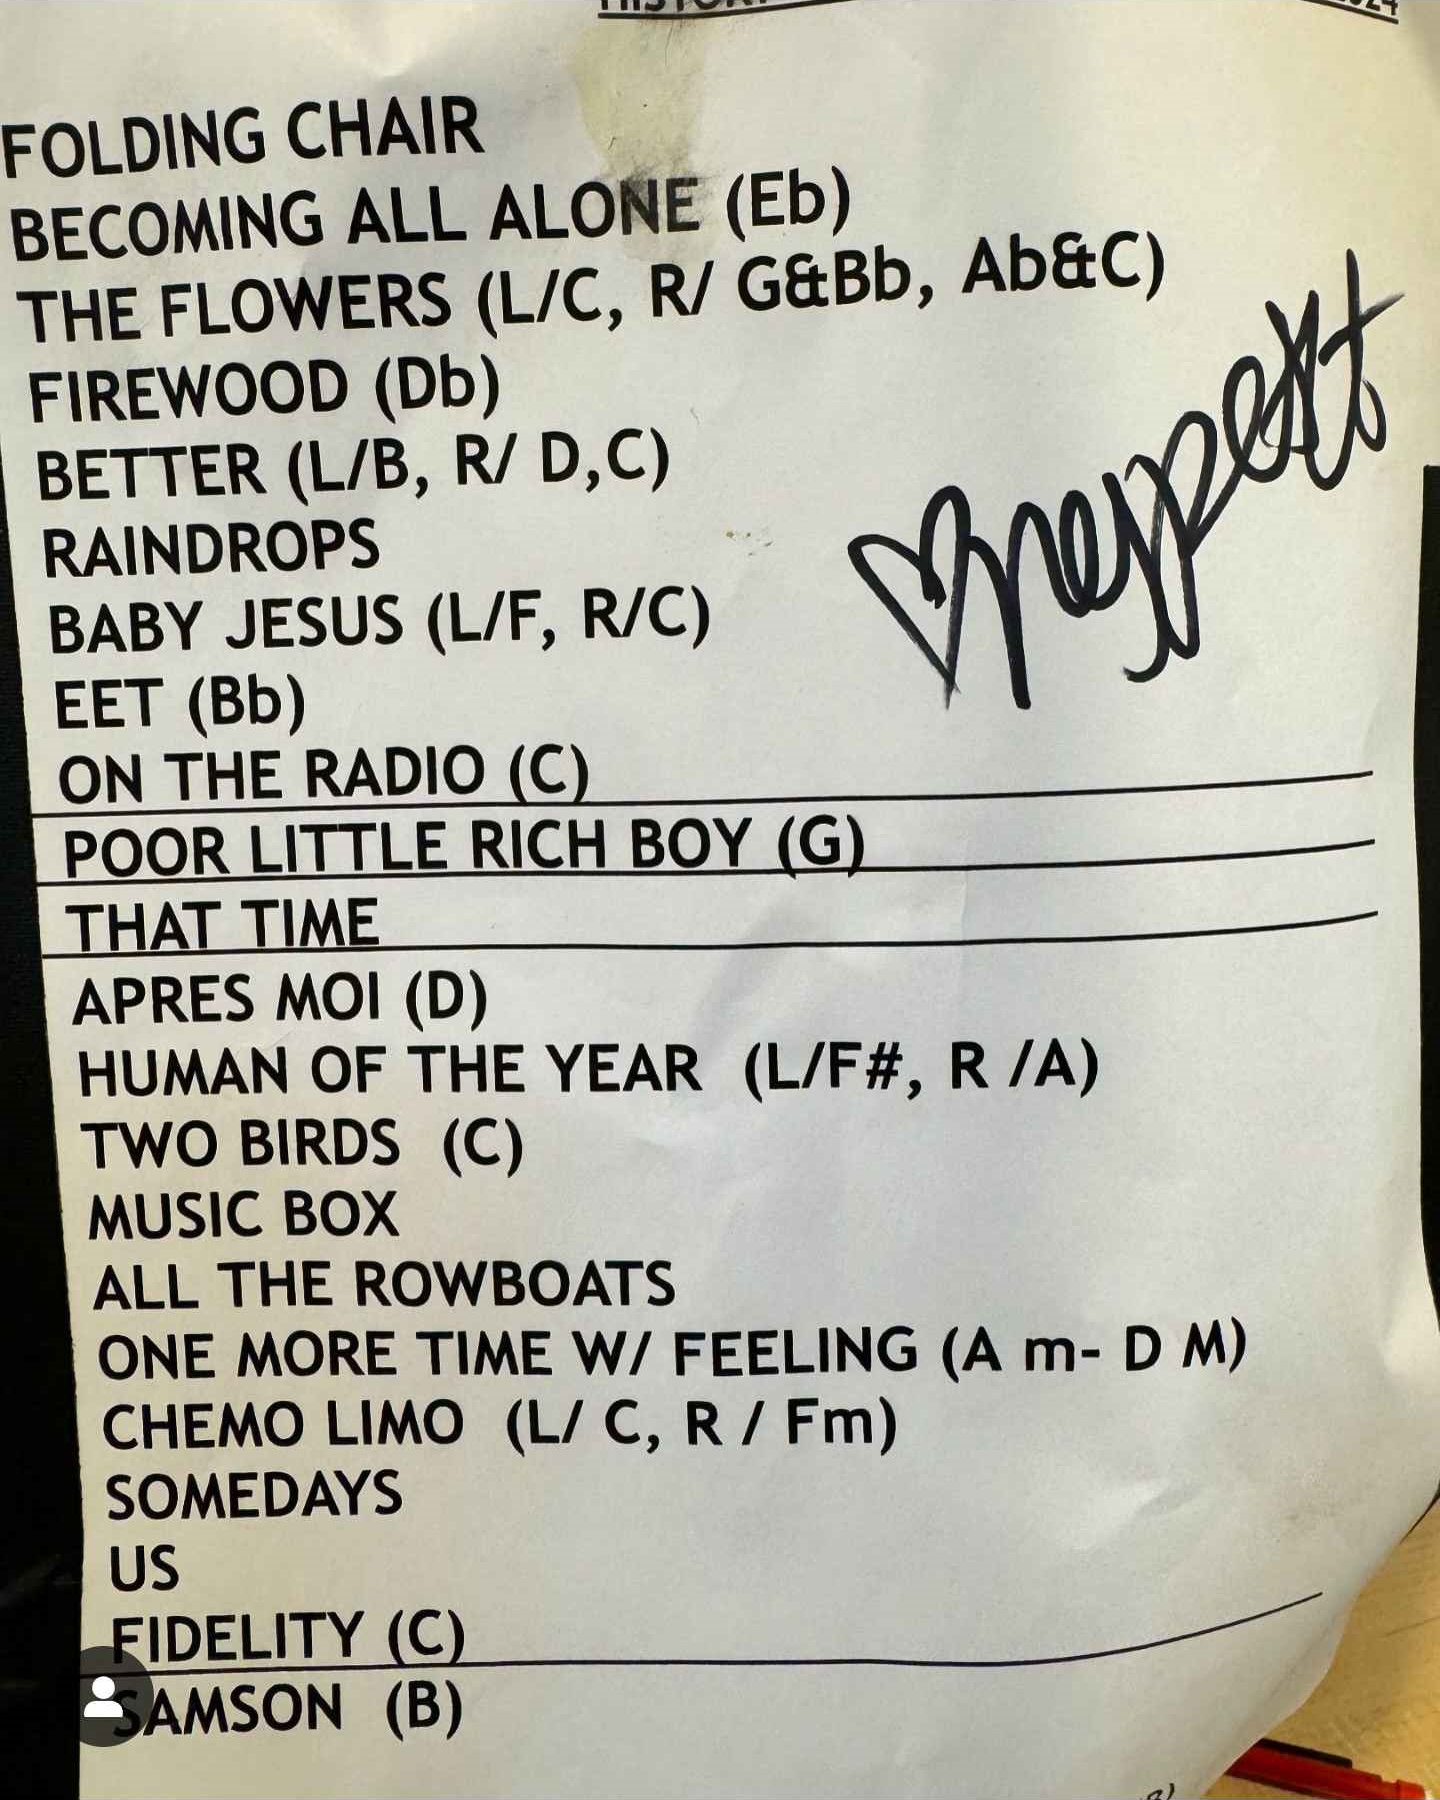 FOLDING CHAIR
BECOMING ALL ALONE (Eb)
THE FLOWERS (L/C, R/ G&Bb, Ab&C)
FIREWOOD (Db)
BETTER (L/B, R/ D,C)
RAINDROPS
BABY JESUS (L/F, R/C)
EET (Bb)
ON THE RADIO (C)
POOR LITTLE RICH BOY (G)
THAT TIME
APRES MOI (D)
HUMAN OF THE YEAR (L/F#, R /A)
TWO BIRDS (C)
MUSIC BOX
ALL THE ROWBOATS
ONE MORE TIME W/ FEELING (A m- D M)
CHEMO LIMO (L/ C, R / Fm)
SOMEDAYS
US
FIDELITY (C)
SAMSON (B)